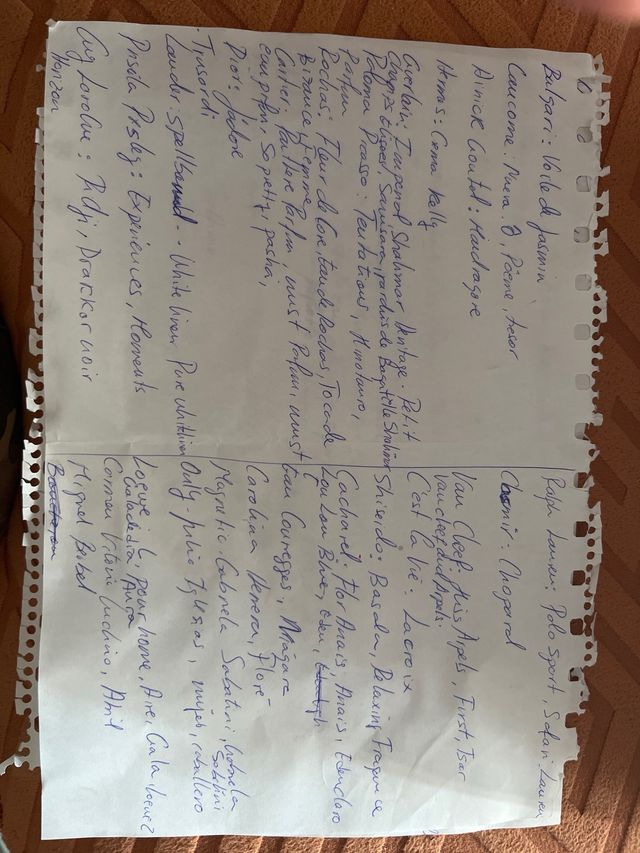 Bulgari: Voile de Jasmin
Lancome: Poeme, tresor
Annick Goutal: Mandragore
Hermes: Kelly
Guerlain: Imperial Shalimar Vintage. Petit
Champs Elysees, Samsara, Jardins de Bagatelle Shalimar
Paloma Picasso: Tentations, Minotauro,
Parfum
Rochas: Fleur de Eau de Rochas, Tocade
Bizance, Femme
Cartier: Panthere Parfum, must Parfum, must
So pretty, pasha,
Dior: Jadore
Trussardi
Lauder: Spellbound - White linen Pure white linen
Prisila Presley: Experiences, Moments
Guy Laroche: Fidji, Drakkar noir
Horizon
Ralph Lauren: Polo Sport, Safari: Lauren
Casmir: Chopard
Van Cleef: This Arpels, First, Tsar
Van cleef and Arpels.
C'est la vie: Lacroix
Shiseido: Basala, Relaxing Fragance
Cacharel: Flor Anais Anais, Eden claro
LouLou Blue, Eden,
Eau Coureges, Niagara
Carolina Herrera, Flore
Magnetic Gabriela Sabatini, Gabriela
Sabatini
Only - Julio Iglesias, mujer, caballero
Loewe: L pour home, Aire, Gala Loewe?
Aura
Carmen Vitorio Luchino, Abril
Miguel